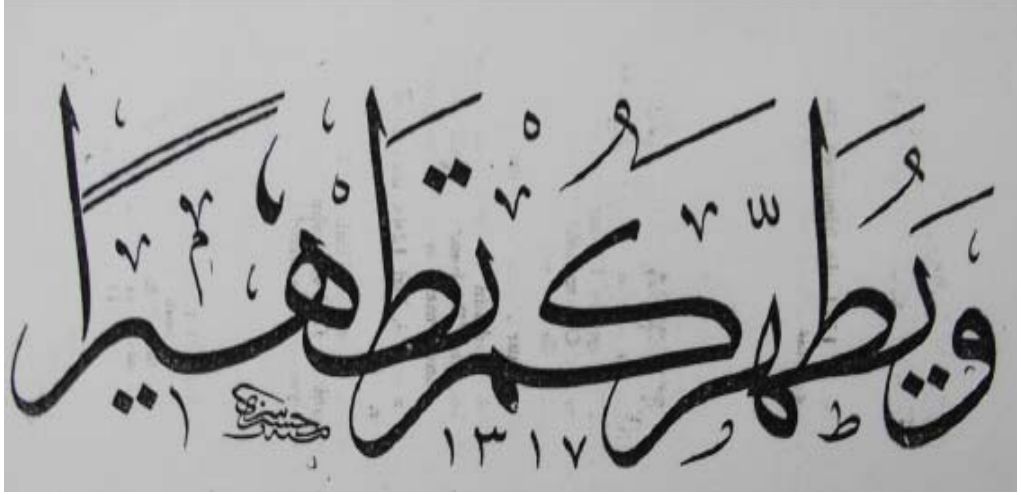 وَيُطَهِّرَكُمْ تَطْهِيرًا
١٣١٧